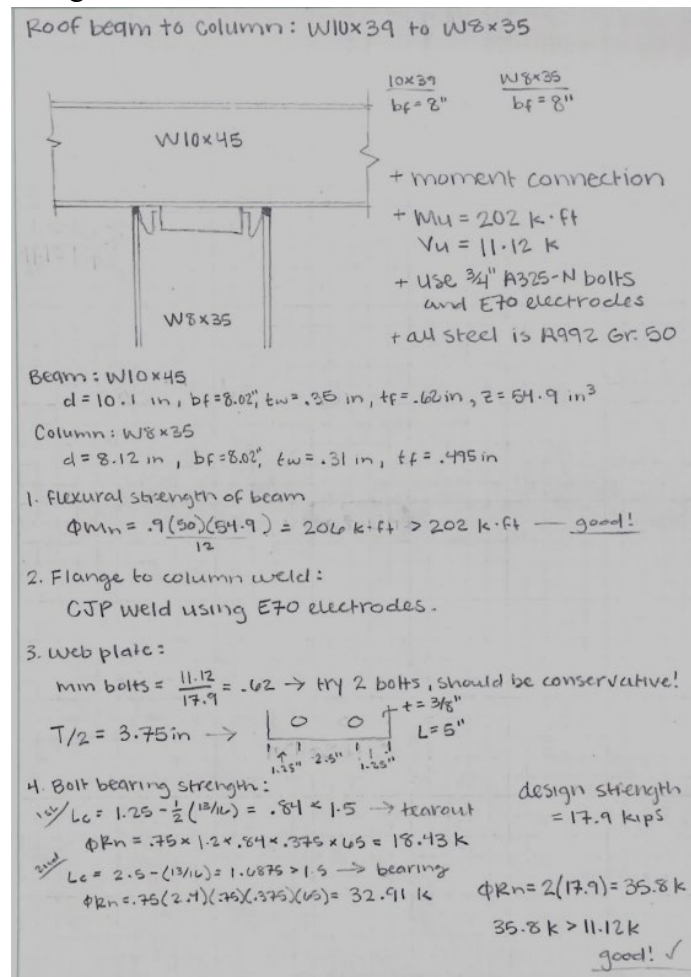 Roof beam to column: W10x39 to W8x35
10x39
bf = 8"
W8x35
bf = 8"
W10x45
+ moment connection
+ Mu = 202 k·ft
Vu = 11.12 k
+ use 3/4" A325-N bolts
and E70 electrodes
W8x35
+ all steel is A992 Gr. 50
Beam: W10x45
d = 10.1 in, bf = 8.02", tw = .35 in, tf = .62 in, Z = 54.9 in³
Column: W8x35
d = 8.12 in, bf = 8.02", tw = .31 in, tf = .495 in
1. Flexural strength of beam
ΦMn = .9(50)(54.9)/12 = 206 k·ft > 202 k·ft — good!
2. Flange to column weld:
CJP weld using E70 electrodes.
3. web plate:
min bolts = 11.12/17.9 = .62 → try 2 bolts, should be conservative!
T/2 = 3.75 in →
t = 3/8"
L = 5"
1.25" 2.5" 1.25"
4. Bolt bearing strength:
1st/ Lc = 1.25 - 1/2 (13/16) = .84 < 1.5 → tearout
ΦRn = .75 x 1.2 x .84 x .375 x 65 = 18.43 k
2nd/ Lc = 2.5 - (13/16) = 1.6875 > 1.5 → bearing
ΦRn = .75(2.4)(.75)(.375)(65) = 32.91 k
design strength
= 17.9 kips
ΦRn = 2(17.9) = 35.8 k
35.8 k > 11.12 k
good! ✓